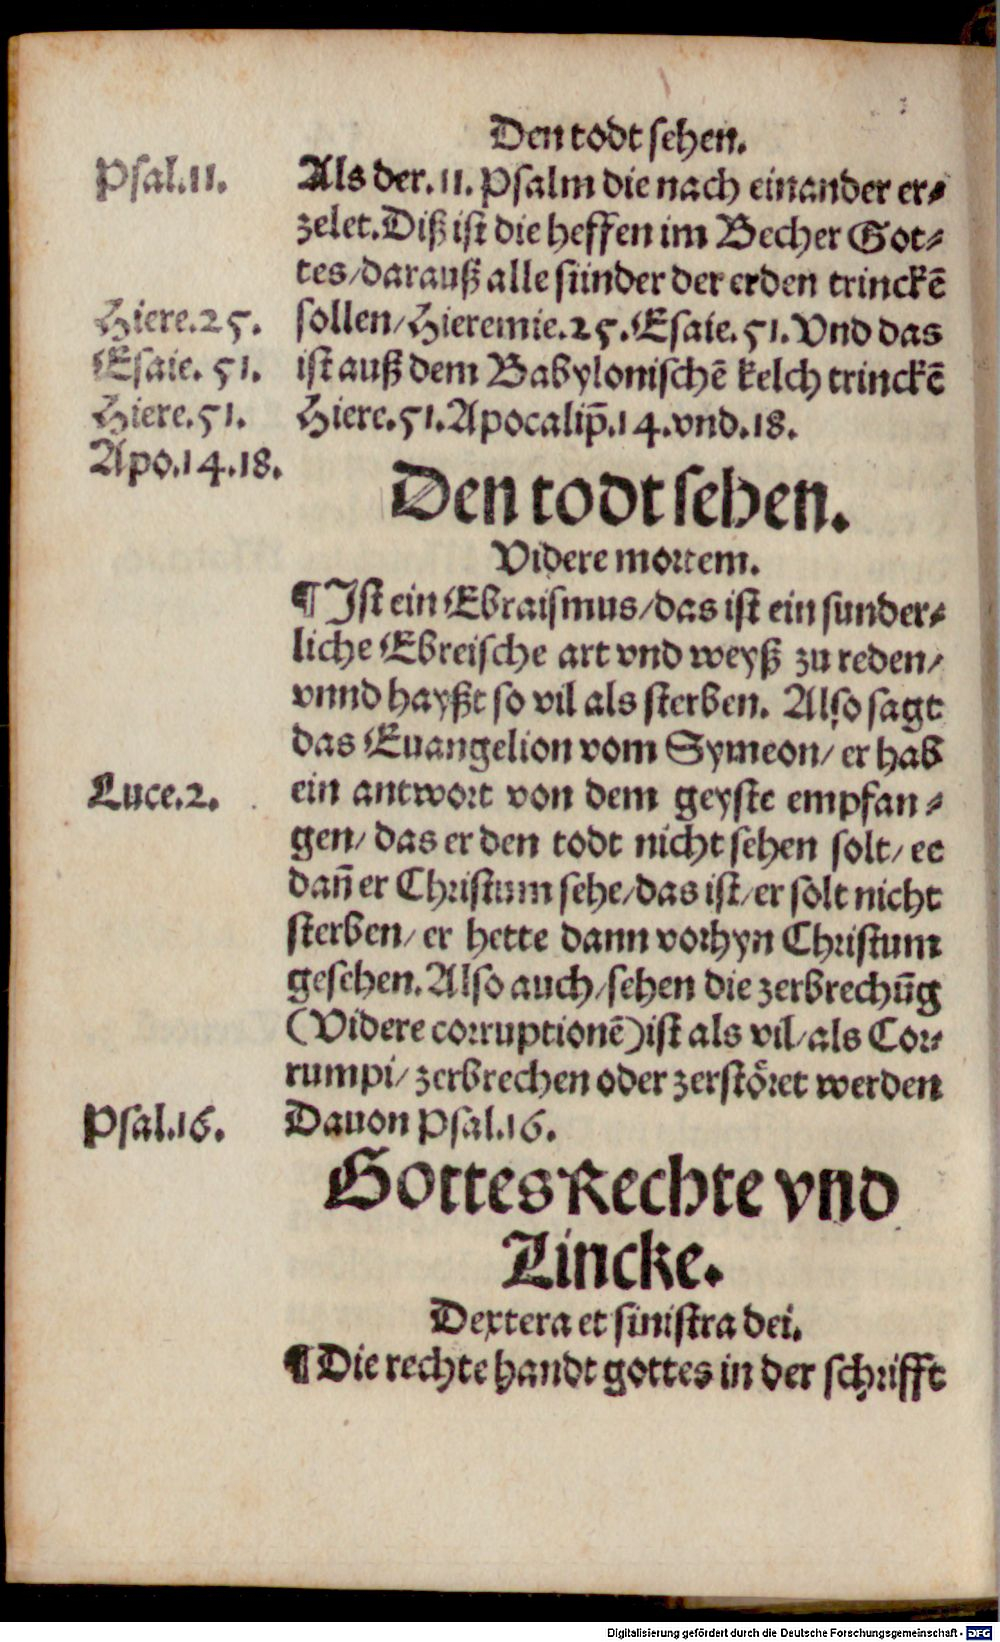 Den todt sehen.
Psal.11.
Als der.11. Psalm die nach einander er⸗
zelet. Diß ist die heffen im Becher Got⸗
tes/darauß alle sünder der erden trinckē
Hiere.25.
sollen/Hieremie.25.Esaie.51.Vnd das
Esaie. 51.
ist auß dem Babylonischē kelch trinckē
Hiere.51.
Hiere.51.Apocalip̄.14.vnd.18.
Apo.14.18.
Den todt sehen.
Videre mortem.
¶ Ist ein Ebraismus/das ist ein sunder⸗
liche Ebreische art vnd weyß zu reden/
vnnd hayßt so vil als sterben. Also sagt
das Euangelion vom Symeon/ er hab
Luce.2.
ein antwort von dem geyste empfan⸗
gen/ das er den todt nicht sehen solt/ ee
dañ er Christum sehe/das ist/er solt nicht
sterben/ er hette dann vorhyn Christum
gesehen. Also auch/sehen die zerbrechūg
(Videre corruptionē)ist als vil/als Cor⸗
rumpi/ zerbrechen oder zerstöret werden
Psal.16.
Dauon Psal.16.
Gottes Rechte vnd
Lincke.
Dextera et sinistra dei.
¶ Die rechte handt gottes in der schrifft
Digitalisierung gefördert durch die Deutsche Forschungsgemeinschaft - DFG